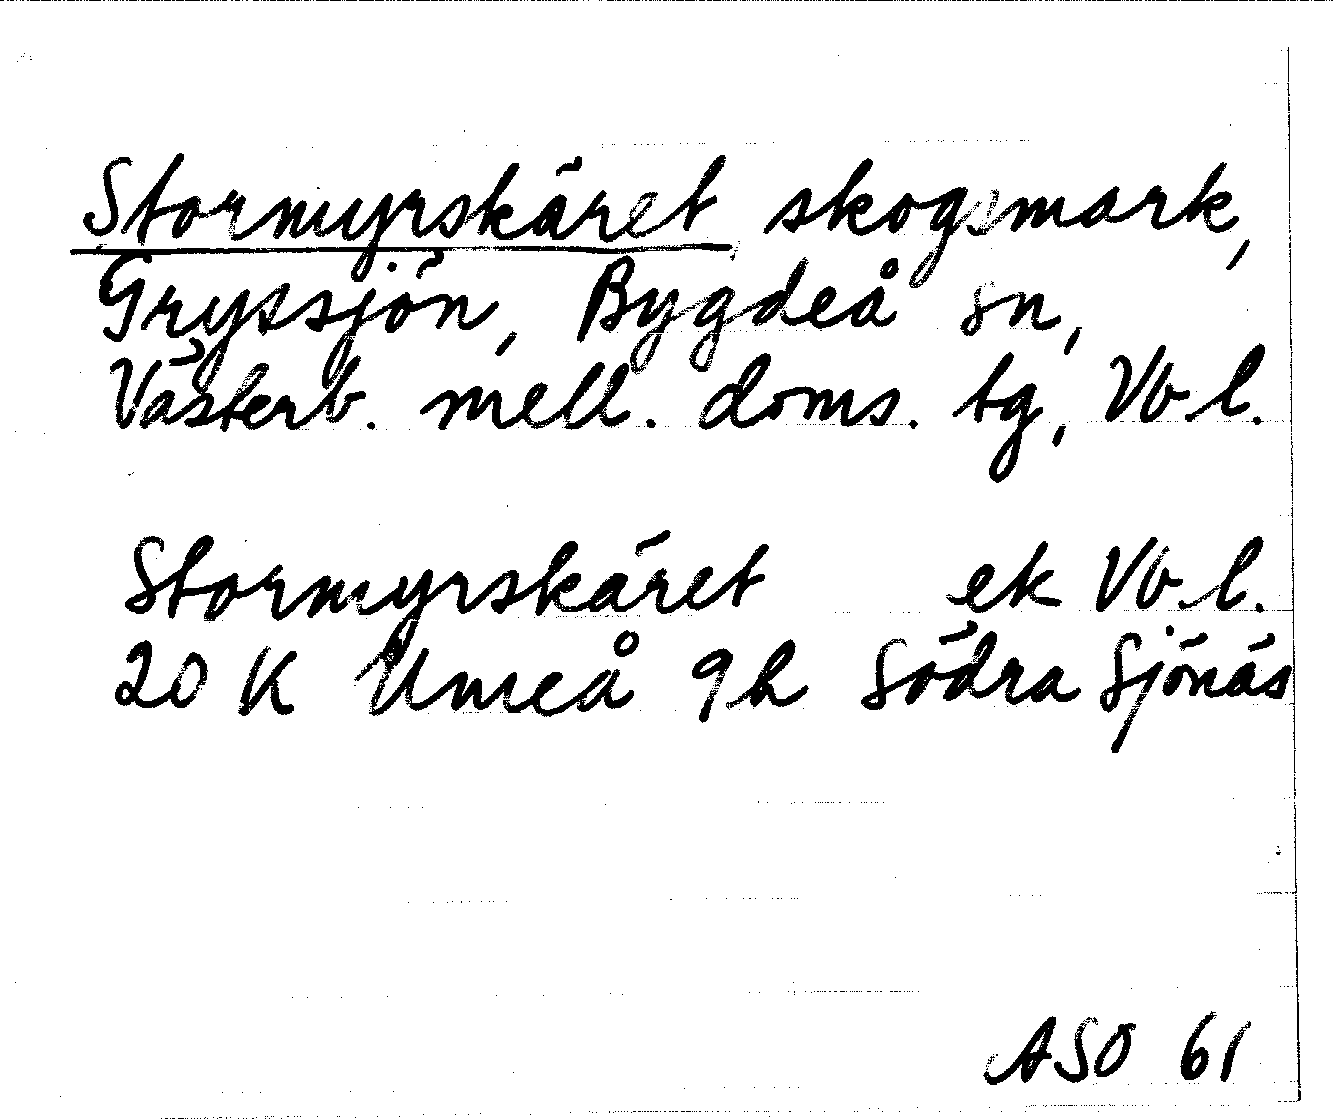 Stormyrskäret skogsmark,
Gryssjön, Bygdeå sn,
Västerb. mell. doms. tg, Vb. l.
Stormyrskäret ek Vb. l.
20 K Umeå 9h Södra Sjönäs
ASO 61